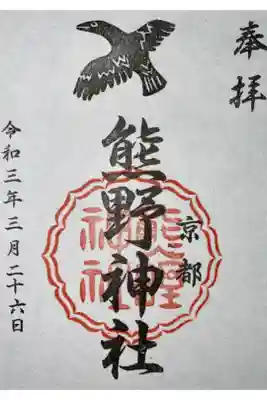 奉拝
京都
熊野神社
令和三年三月二十六日